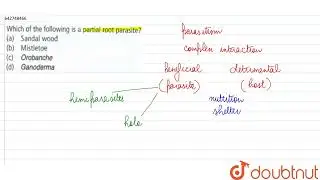 642748466
Which of the following is a partial root parasite?
(a) Sandal wood
(b) Mistletoe
(c) Orobanche
(d) Ganoderma
parasitism
complex interaction
beneficial detrimental
(parasite) (host)
hemiparasites nutrition
shelter
holo
doubtnut